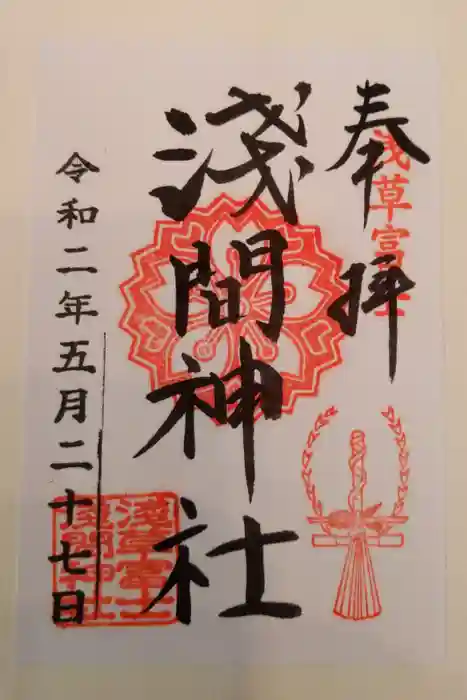 奉拝
浅草富士
淺間神社
令和二年五月二十七日
淺草富士
淺間神社